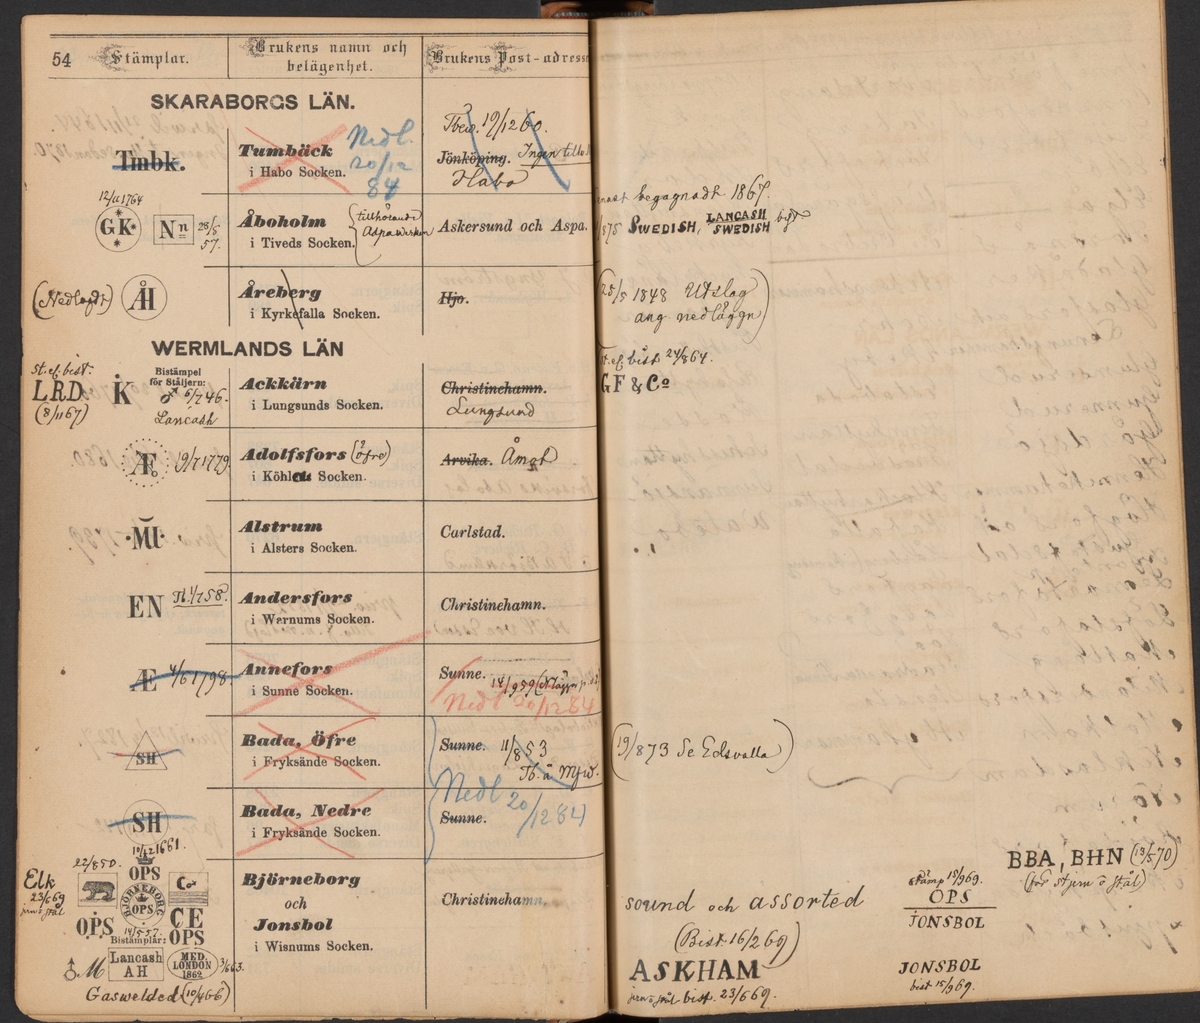 54
Stämplar.
Brukens namn och
belägenhet.
Brukens Post-adress
SKARABORGS LÄN.
Tmbk.
Tumbäck
i Habo Socken.
Nedl.
20/12
84
19/12 60.
Jönköping. Ingen
Habo
12/11 1764
GK
Nn
28/5
57.
Åboholm
i Tiveds Socken.
tillhörande
Aspa
Askersund och Aspa.
begagnadt 1867.
SWEDISH, LANCASH
SWEDISH
(Nedlagdt)
ÅH
Åreberg
i Kyrkefalla Socken.
Hjo.
25/5 1848 Utslag
ang. nedläggn)
WERMLANDS LÄN
st. ef. bist:
L.R.D
(8/11 67)
K
Bistämpel
för Ståljern:
♂ 6/7 46.
Lancash
Ackkärn
i Lungsunds Socken.
Christinehamn.
Lungsund
ef. bist 24/8 64.
GF & Co
Æ
19/7 1779
Adolfsfors (Öfre)
i Köhla Socken.
Arvika. Åmot
MI
Alstrum
i Alsters Socken.
Carlstad.
EN
Andersfors
i Warnums Socken.
Christinehamn.
Æ
4/6 1798.
Annefors
i Sunne Socken.
Sunne.
14/9 59
Nedl 20/12 84
SH
Bada, Öfre
i Fryksände Socken.
Sunne. 11/8 53
(19/8 73 Se Edsvalla)
SH
10/12 1661.
Bada, Nedre
i Fryksände Socken.
Nedl 20/12 84
Sunne.
22/8 50.
OPS
Elk
23/6 69
jern o stål
BJÖRNEBORG
OPS
C
OPS
14/5 57.
CE
OPS
Bistämplar:
♂ M
Lancash
AH
MED.
LONDON
1862
3/6 63.
Gaswelded (10/4 66)
Björneborg
och
Jonsbol
i Wisnums Socken.
Christinehamn.
sound och assorted
(Bist. 16/2 69)
ASKHAM
jern o stål bist. 23/6 69.
stämp 15/9 69.
OPS
JONSBOL
JONSBOL
bist 15/9 69.
BBA, BHN (13/5 70)
(för stjern o stål)